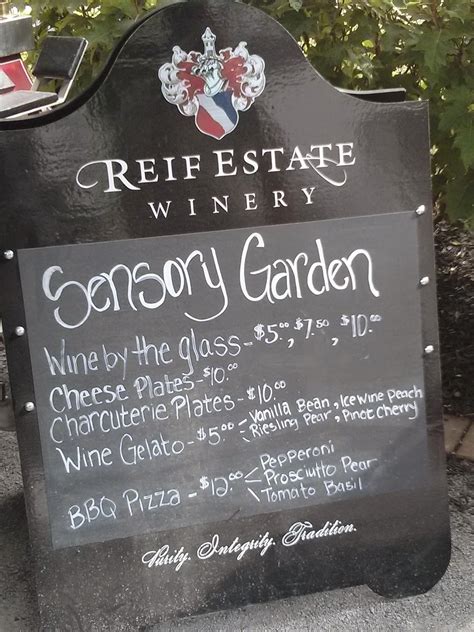 REIF ESTATE
WINERY
Sensory Garden
Wine by the glass - $5.00, $7.50, $10.00
Cheese Plates - $10.00
Charcuterie Plates - $10.00
Wine Gelato - $5.00 - Vanilla Bean, Icewine Peach
Riesling Pear, Pinot Cherry
BBQ Pizza - $12.00 - Pepperoni
Prosciutto Pear
Tomato Basil
Purity. Integrity. Tradition.